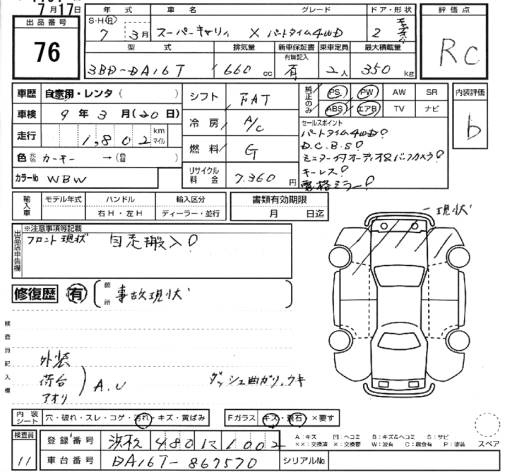 7月17日
S・H(R) 年 車名 グレード ドア・形状 評価点
出品番号 7 3月 スーパーキャリィ X パートタイム4WD 2
76
型式 排気量 新車保証書 乗車定員 最大積載量
有無記入
3BD-DA16T 660cc 有 2人 350kg RC
車歴 自家用・レンタ( ) シフト FAT 純正のみ PS PW AW SR 内装評価
ABS エアB TV ナビ
車検 9年3月(20日) 冷房 A/C セールスポイント b
パートタイム4WD!
走行 1,802 km マイル 燃料 G D.C.B.S!
ミニター付オーディオ&バックカメラ!
色 カーキー→( ) リサイクル料金 7,360円 キーレス!
カラーNo WBW
輸入車 モデル年式 ハンドル 輸入区分 書類有効期限
右H・左H ディーラー・並行 月 日迄
現状
出品店申告欄 ※注意事項等記載
フロント現状 自売搬入!
修復歴 有 箇所 事故現状
検査員記入欄
外装
荷台 A.U ダッシュ曲がり、ウキ
アオリ
内装シート 穴・破れ・スレ・コゲ・汚れ・キズ・黄ばみ Fガラス キズ・飛石×要す
検査員 登録番号 浜松 480 い 1002 スペア
11 車台番号 DA16T-867570 シリアルNo